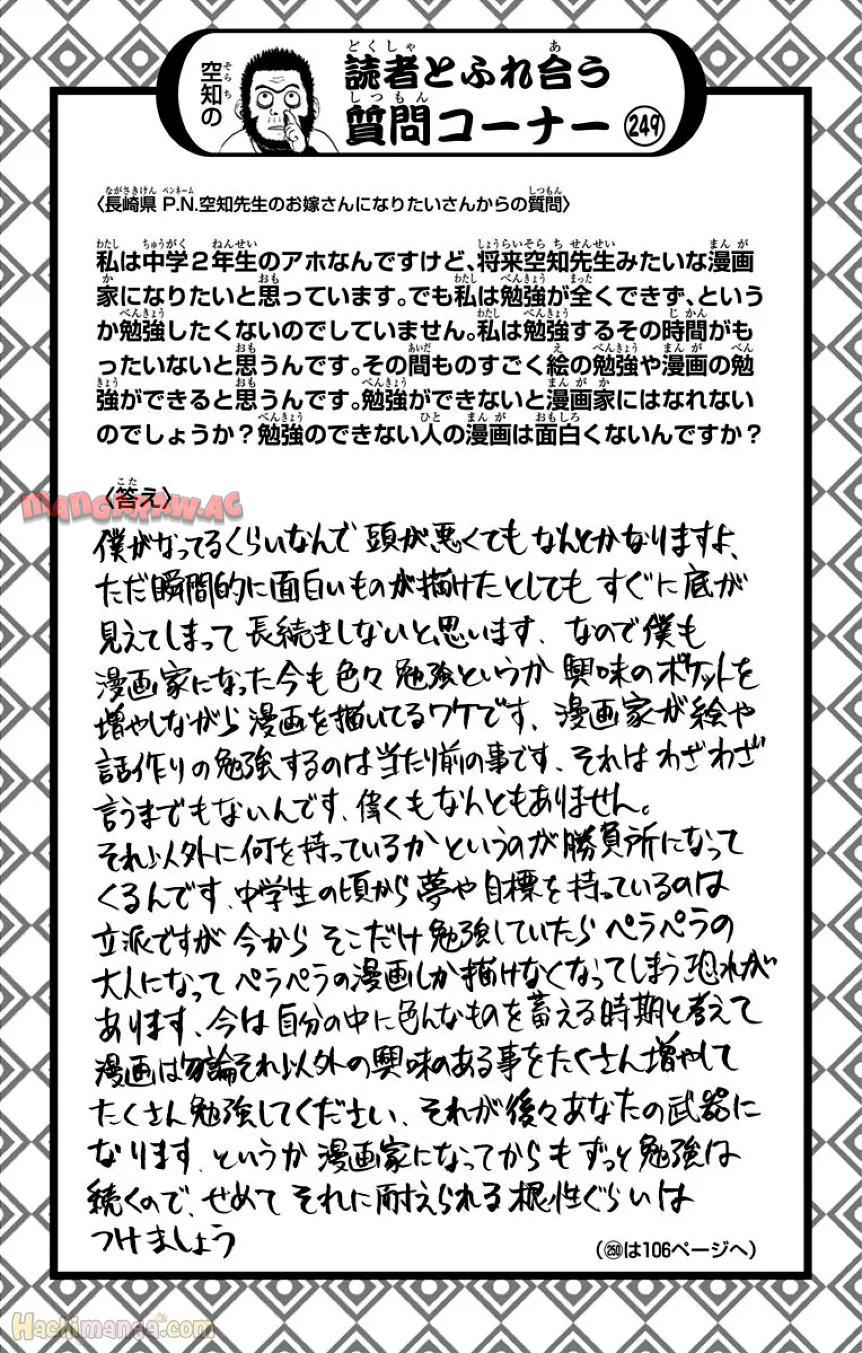 空知の
読者とふれ合う
質問コーナー 249
〈長崎県 P.N.空知先生のお嫁さんになりたいさんからの質問〉
私は中学2年生のアホなんですけど、将来空知先生みたいな漫画
家になりたいと思っています。でも私は勉強が全くできず、という
か勉強したくないのでしていません。私は勉強するその時間がも
ったいないと思うんです。その間ものすごく絵の勉強や漫画の勉
強ができると思うんです。勉強ができないと漫画家にはなれない
のでしょうか？勉強のできない人の漫画は面白くないんですか？
〈答え〉
MANGARAW.AC
僕がなってるくらいなんで 頭が悪くてもなんとかなりますよ、
ただ瞬間的に面白いものが描けたとしても すぐに底が
見えてしまって 長続きしないと思います、なので僕も
漫画家になった今も色々勉強というか 興味のポケットを
増やしながら漫画を描いてるワケです、漫画家が絵や
話作りの勉強するのは当たり前の事です、それはわざわざ
言うまでもないんです、偉くもなんともありません。
それ以外に何を持っているかというのが勝負所になって
くるんです、中学生の頃から夢や目標を持っているのは
立派ですが 今からそこだけ勉強していたらペラペラの
大人になって ペラペラの漫画しか描けなくなってしまう恐れが
あります、今は自分の中に色んなものを蓄える時期と考えて
漫画は勿論それ以外の興味のある事をたくさん増やして
たくさん勉強してください、それが後々あなたの武器に
なります、というか漫画家になってからもずっと勉強は
続くので、せめてそれに耐えられる根性ぐらいは
つけましょう
(250は106ページへ)
Hachimanga.com